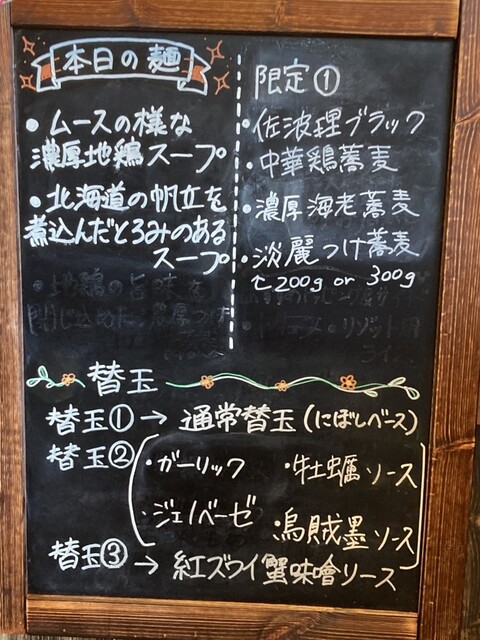 本日の麺
・ムースの様な
濃厚地鶏スープ
・北海道の帆立を
煮込んだとろみのある
スープ
・地鶏の旨味を
閉じ込めた濃厚つけ
限定①
・佐波理ブラック
・中華鶏蕎麦
・濃厚海老蕎麦
・淡麗つけ蕎麦
200g or 300g
替玉
替玉①→通常替玉(にぼしベース)
替玉②
・ガーリック ・牡蠣ソース
・ジェノベーゼ ・烏賊墨ソース
替玉③→紅ズワイ蟹味噌ソース